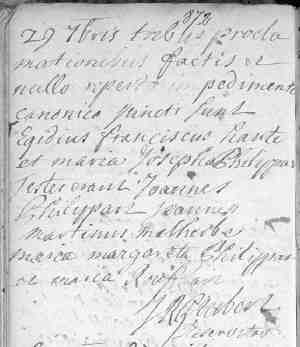 872
29 7bris tribus procla
mationibus factis et
nullo reperto impedimento
canonico juncti sunt
Egidius franciscus
et maria Josepha Philippart
Testes erant Joannes
Philippart Joannes
martinus malherbe
maria margareta Philippar
et maria